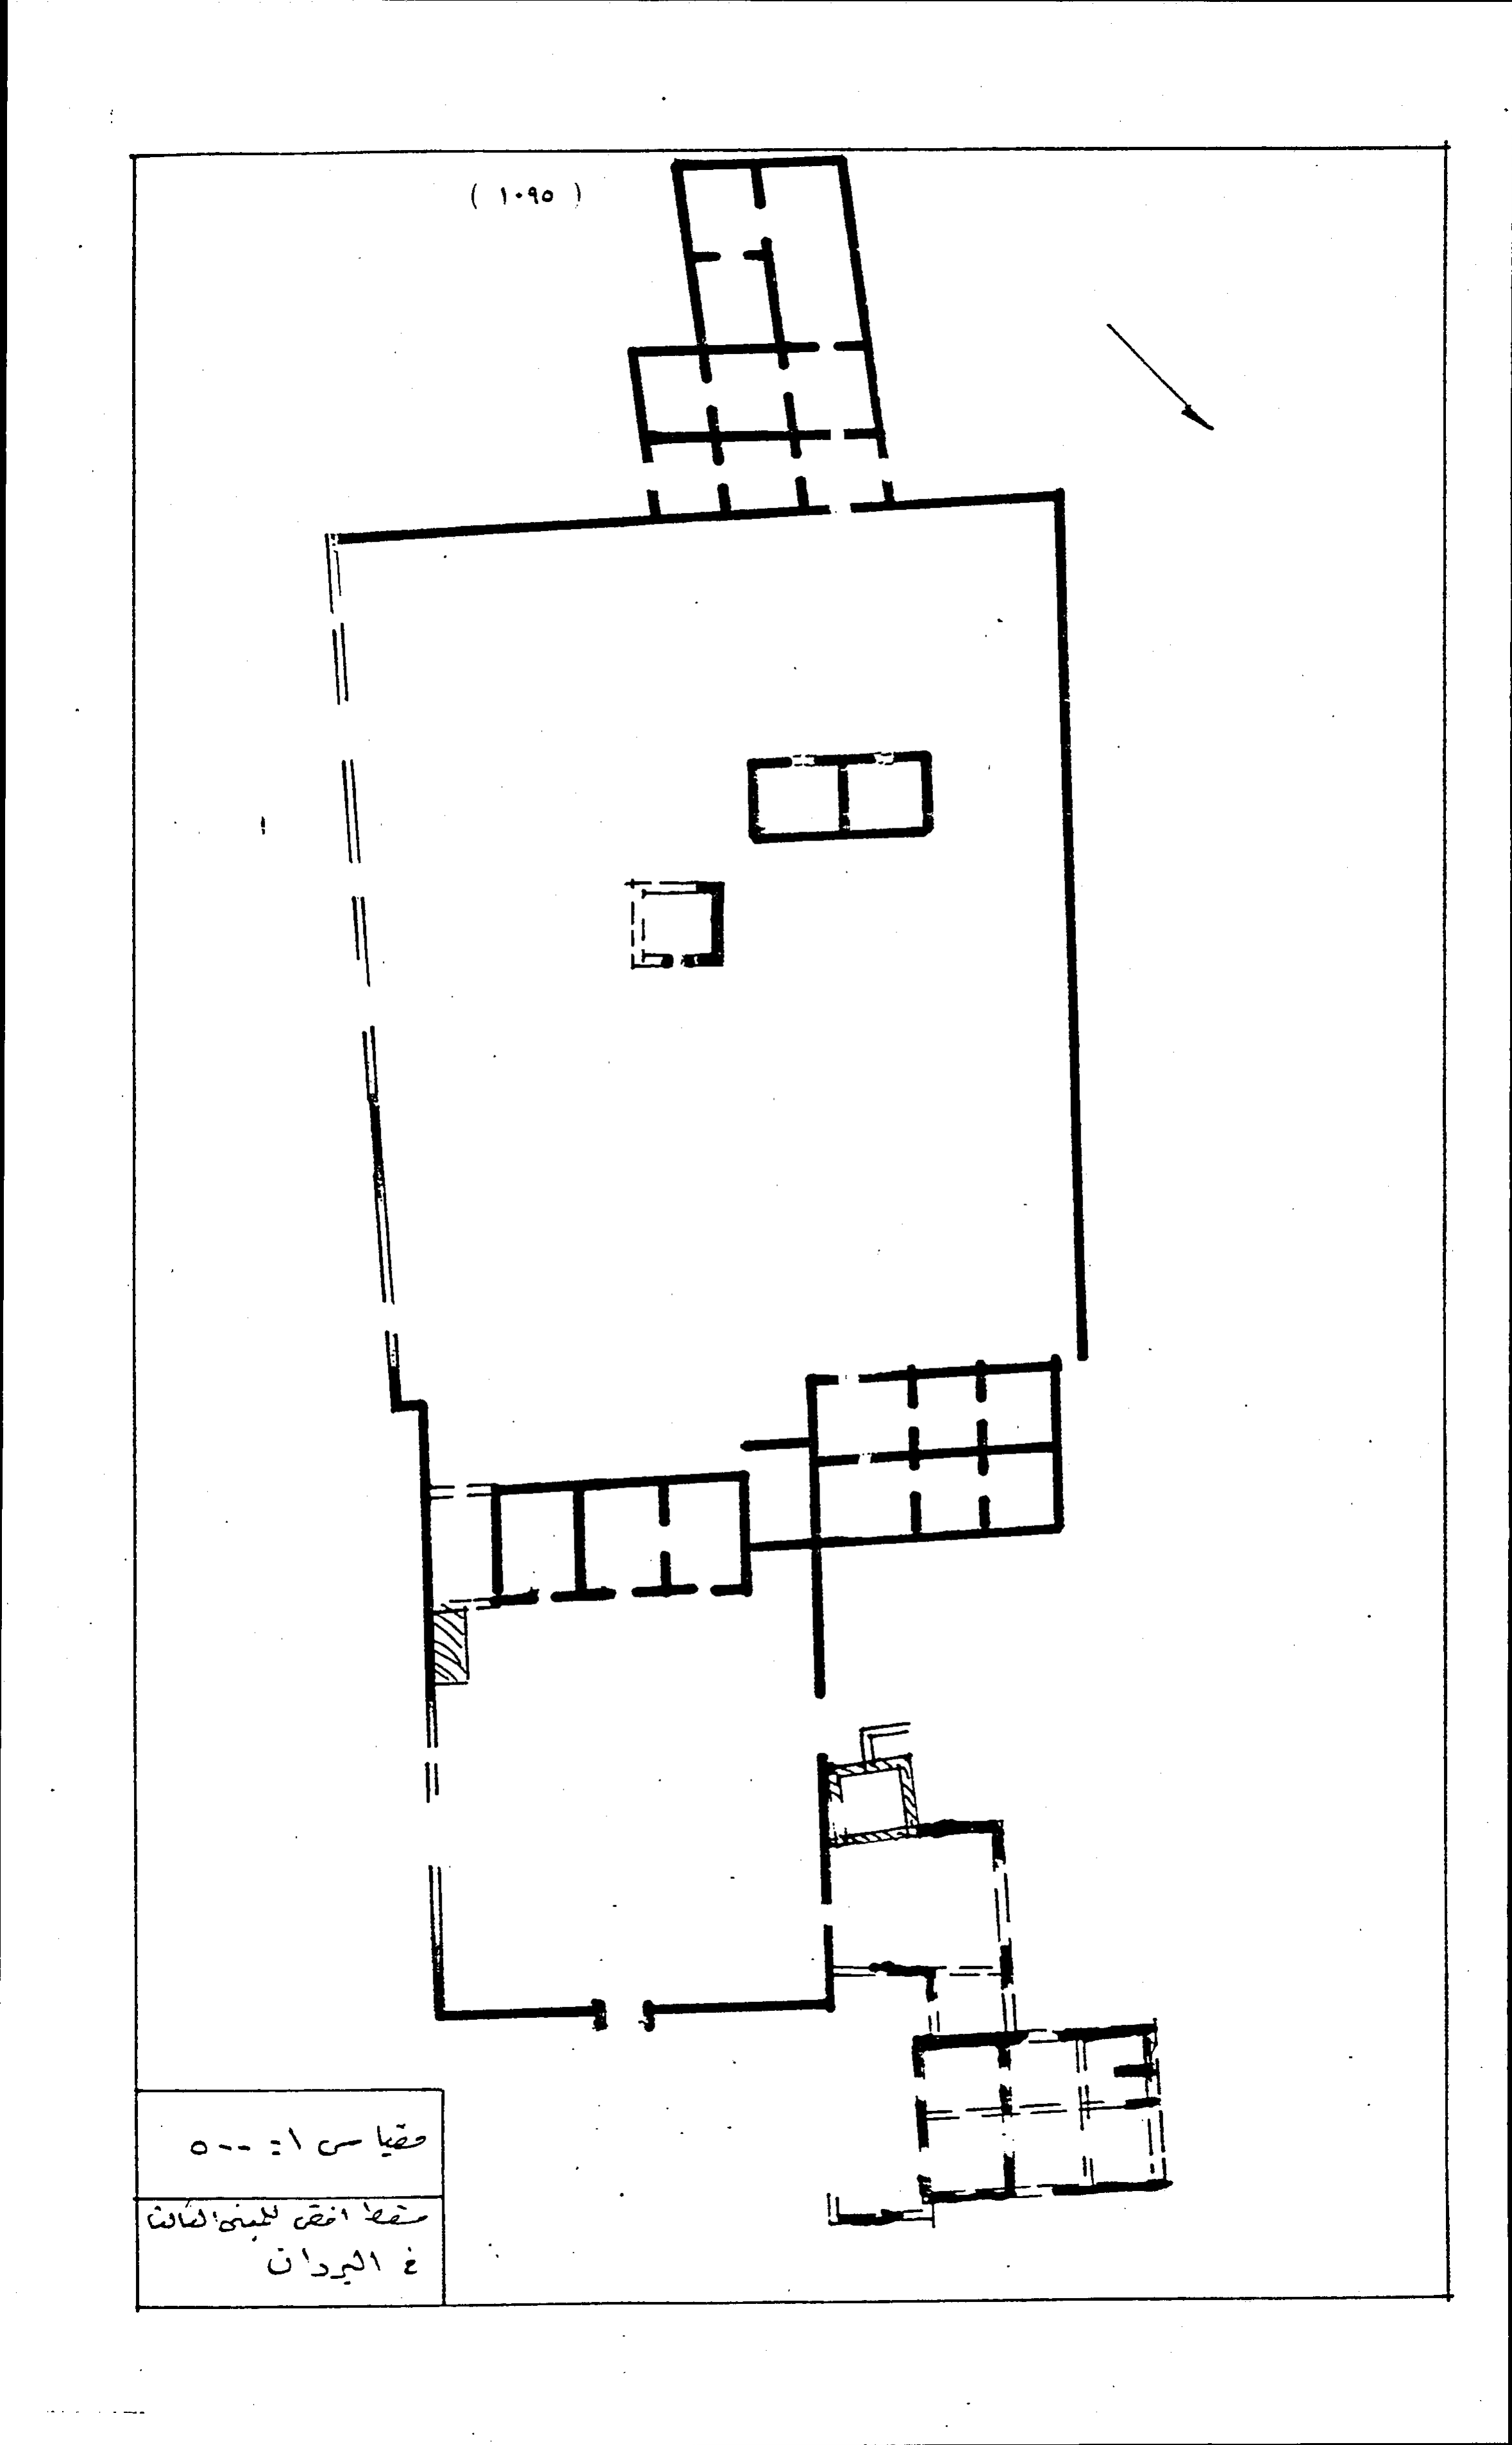 ( ١٠٩٥ )
مقياس ١ = ٥٠٠
مسقط افقي للمبنى الثالث
في البردان